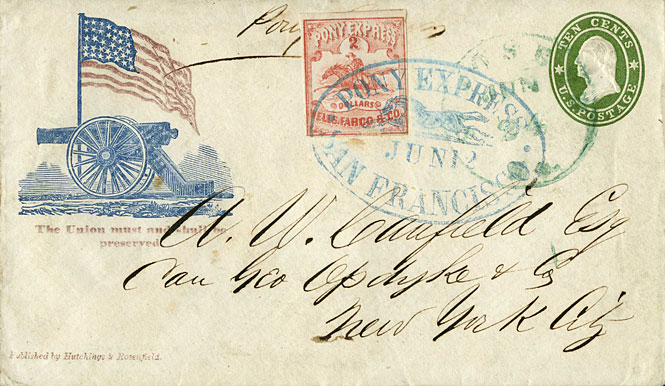 Pony
PONY EXPRESS
2
DOLLARS
WELLS, FARGO & CO.
PONY EXPRESS
JUN 12
SAN FRANCISCO.
TEN CENTS
U.S. POSTAGE
The Union must and shall be
preserved
A. W. Canfield Esq
Care Geo Opdyke & Co
New York City
Published by Hutchings & Rosenfield.